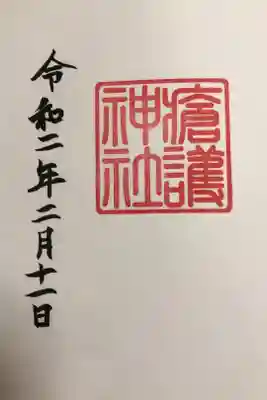 瘡護
神社
令和二年二月十一日